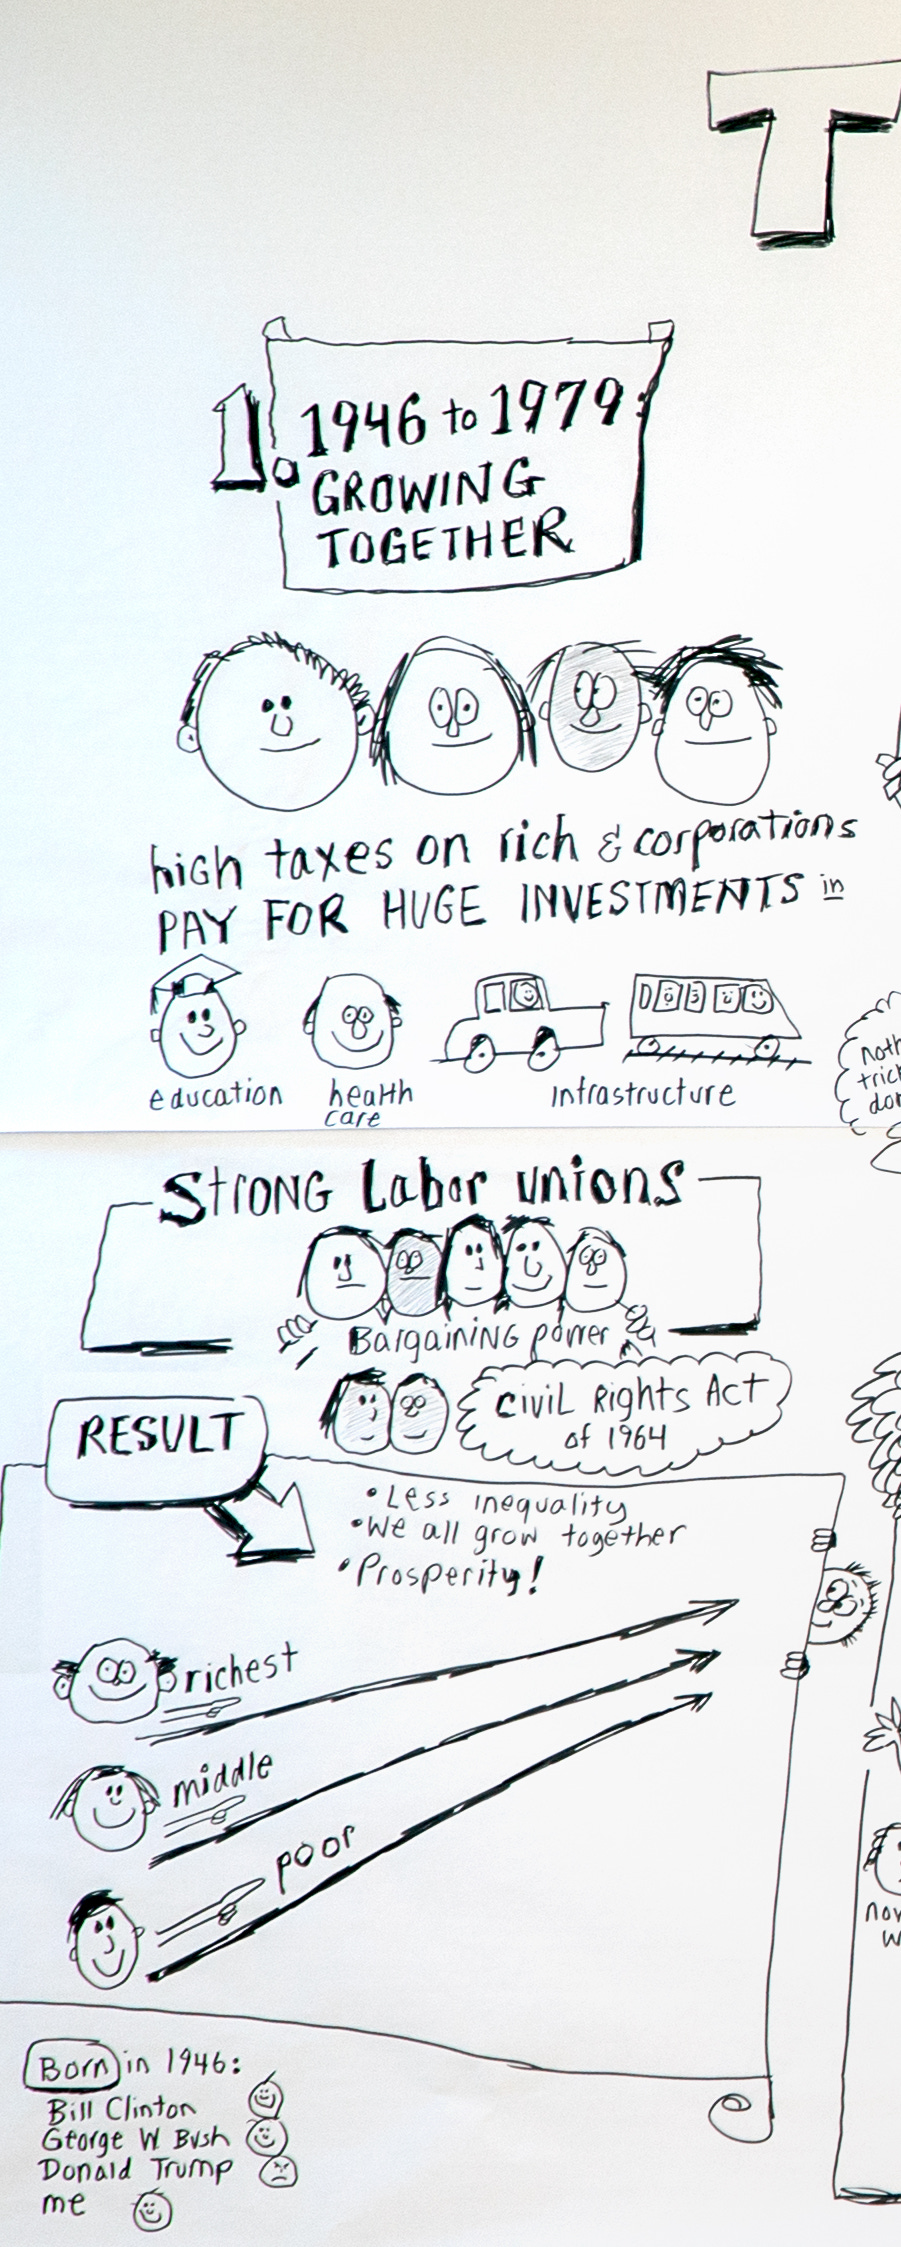 T
1. 1946 to 1979:
GROWING
TOGETHER
high taxes on rich & corporations
PAY FOR HUGE INVESTMENTS in
education
health
care
Infrastructure
STRONG Labor unions
Bargaining power
Civil Rights Act
of 1964
RESULT
• Less inequality
• We all grow together
• Prosperity!
richest
middle
poor
Born in 1946:
Bill Clinton
George W Bush
Donald Trump
me